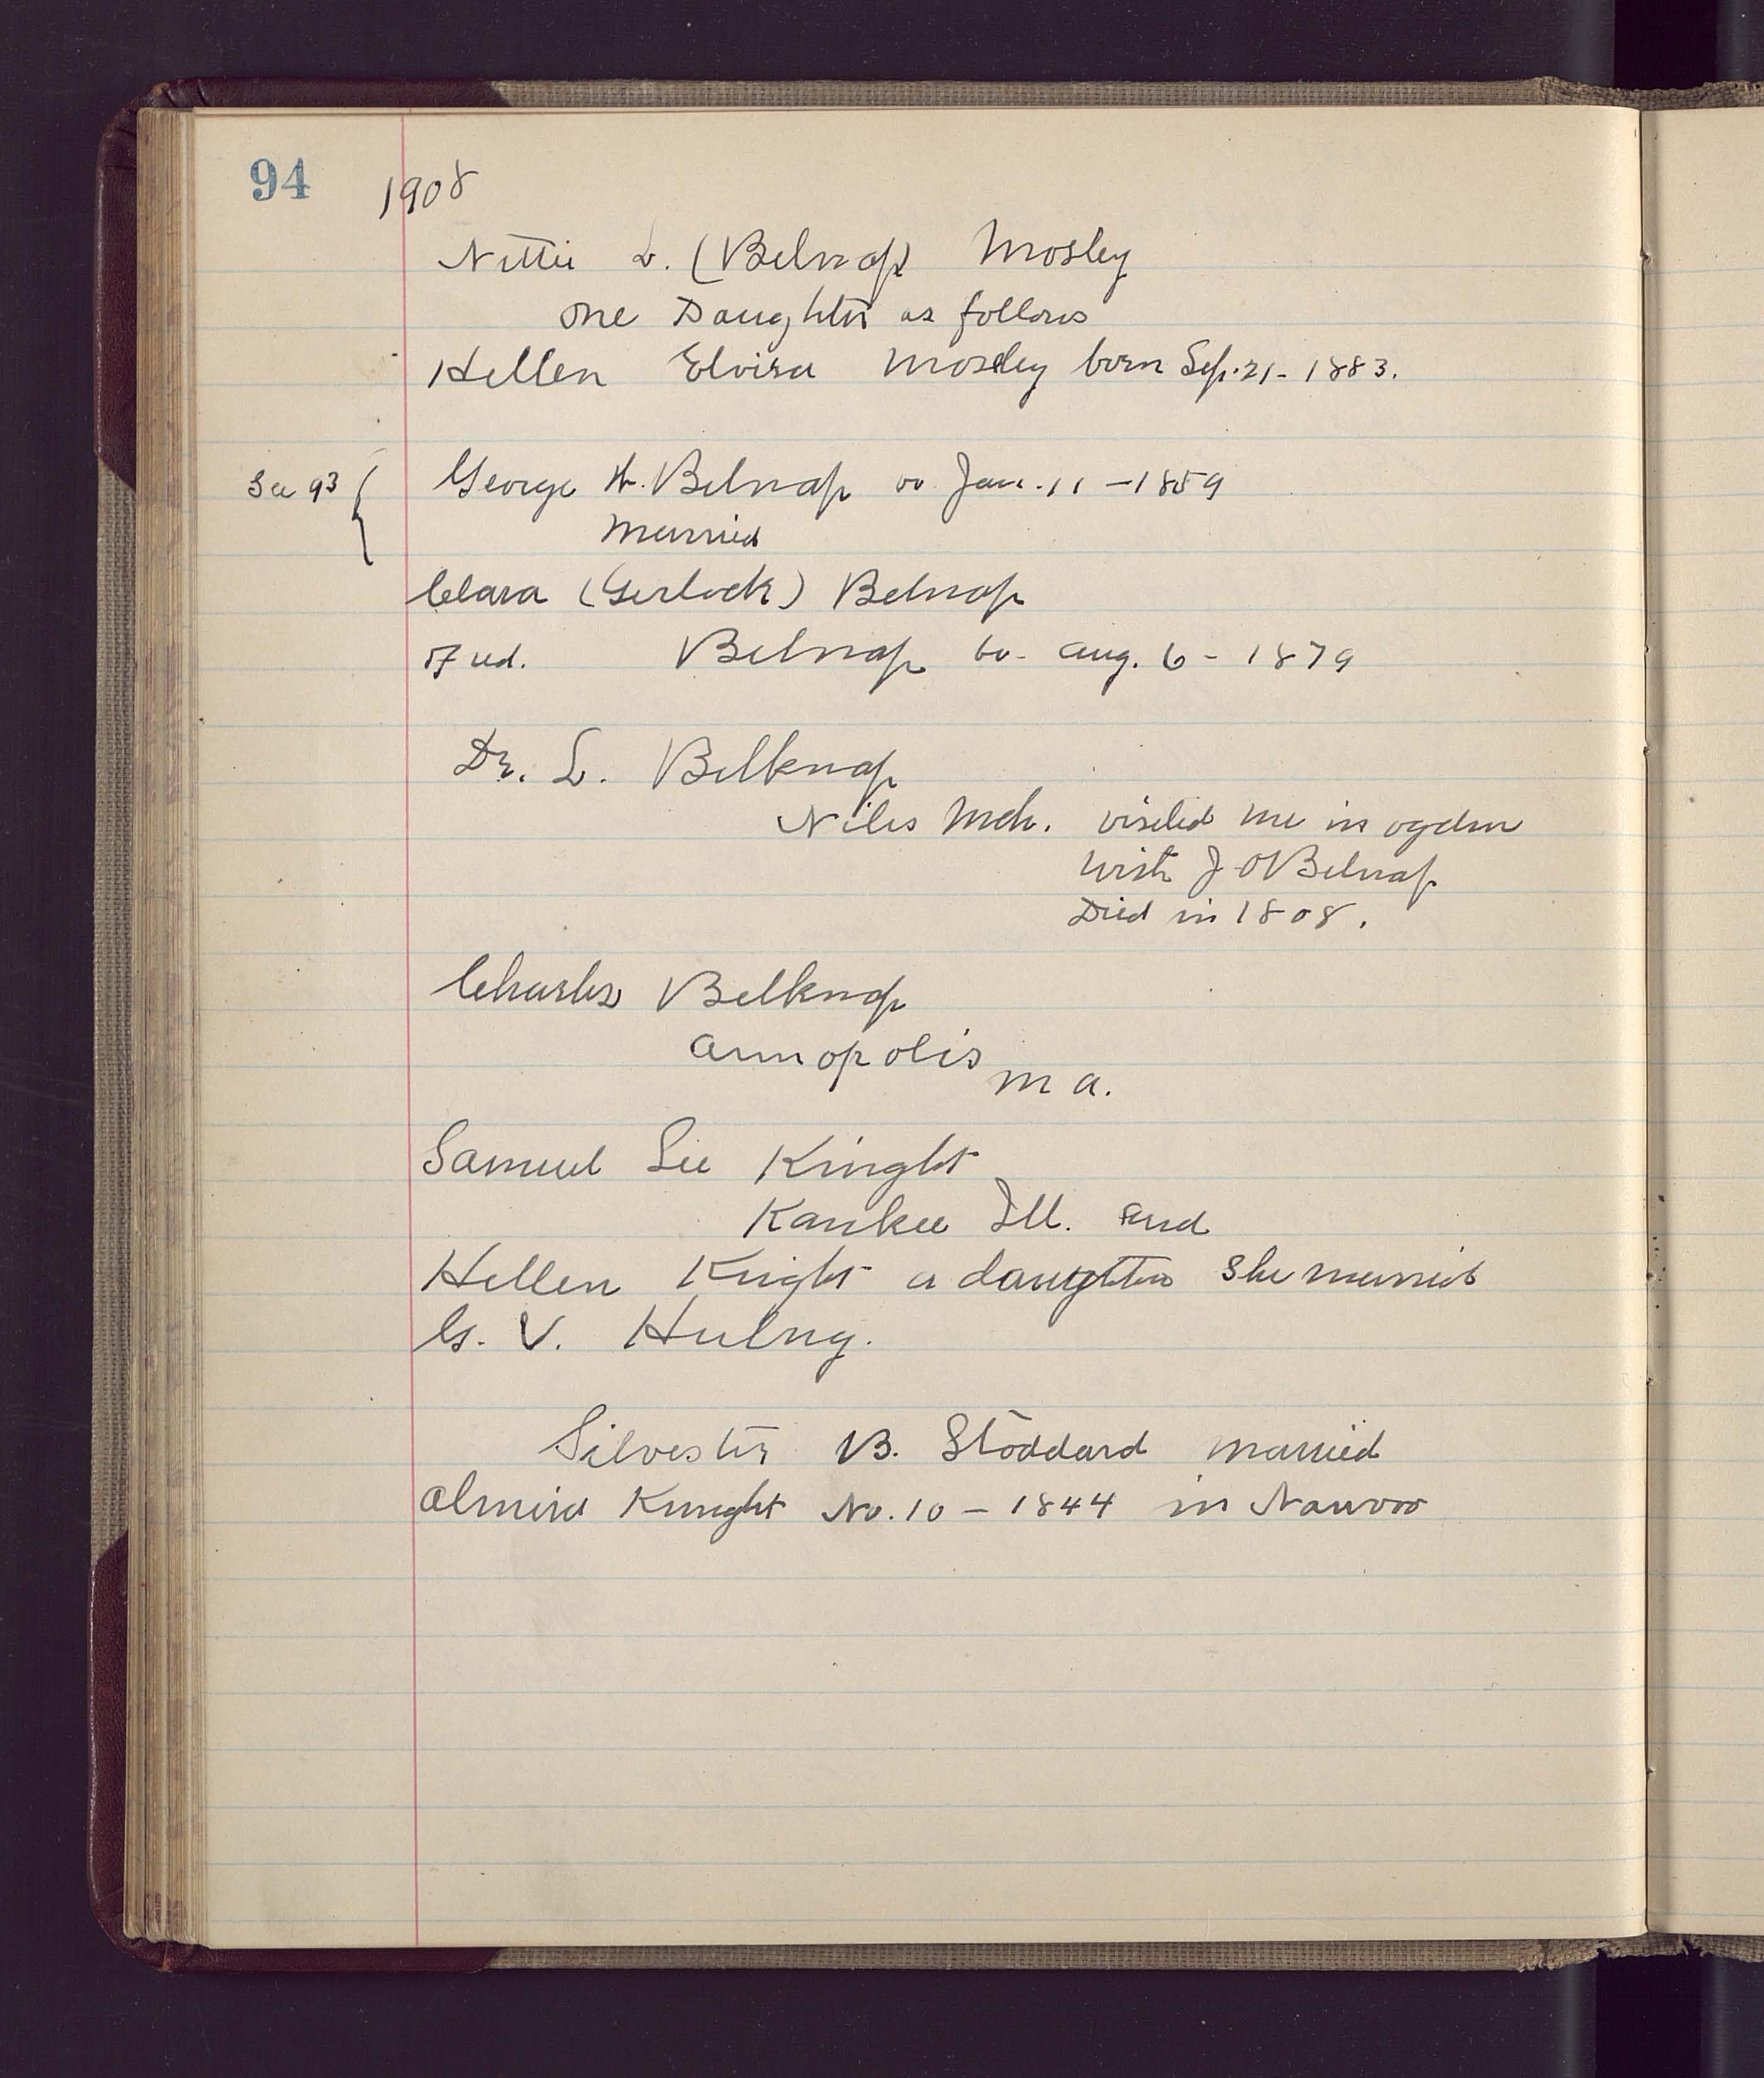 94 1908
Nettie L. (Belnap) Mosley
one Daughter as follows
Hellen Elvira Mosley born Sep. 21 - 1883.
See 93 { George H. Belnap Jan. 11 - 1859
Married
Clara (Gerlock) Belnap
Fred. Belnap bo- Aug. 6 - 1879
Dr. L. Belknap
Niles Mch. viseled me in ogden
with J O Belnap
Died in 1808.
Charles Belknap
Annopolis
M a.
Samuel Lee Kinght
Kankee Ill. and
Hellen Knight a daughter she married
G. V. Hulng.
Silvester B. Stoddard married
Almira Knnght No. 10 - 1844 in Nauvoo